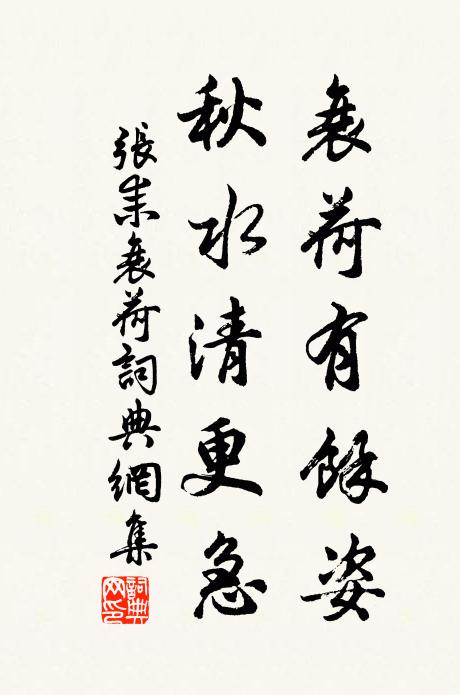 衰荷有餘姿
秋水清更急
張耒衰荷詞典網集
詞典網印